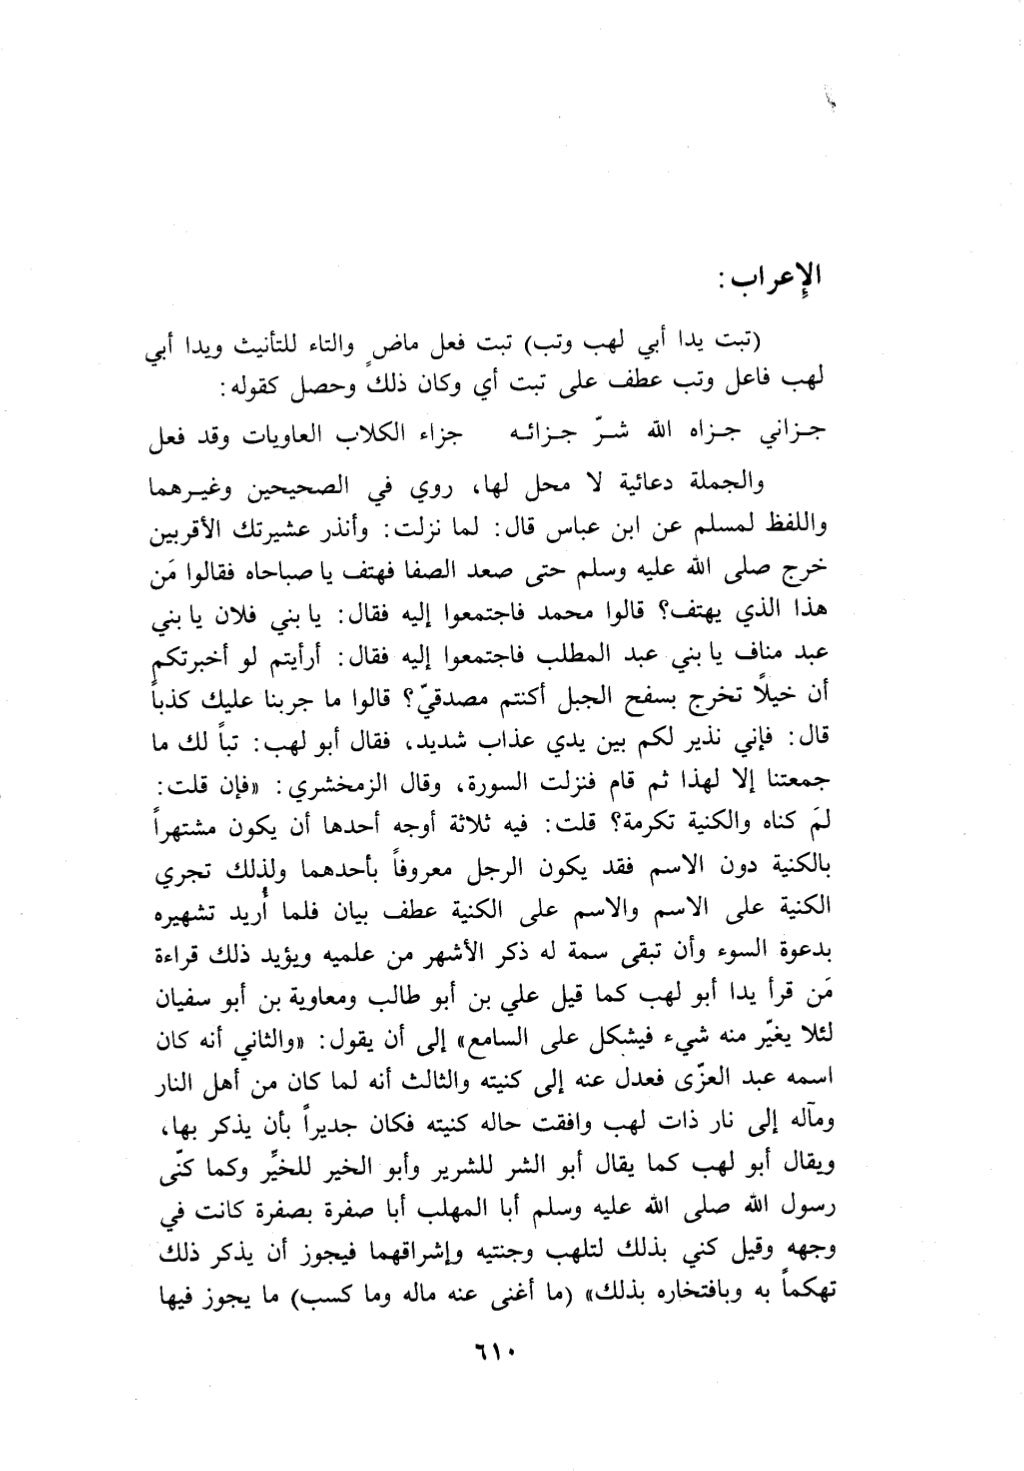 الإعراب :
(تبت يدا أبي لهب وتب) تبت فعل ماضٍ والتاء للتأنيث ويدا أبي
لهب فاعل وتب عطف على تبت أي وكان ذلك وحصل كقوله :
جـزاني جـزاه الله شـرّ جـزائـه جزاء الكلاب العاويات وقد فعل
والجملة دعائية لا محل لها، روي في الصحيحين وغيـرهما
واللفظ لمسلم عن ابن عباس قال: لما نزلت: وأنذر عشيرتك الأقربين
خرج صلى الله عليه وسلم حتى صعد الصفا فهتف يا صباحاه فقالوا مَن
هذا الذي يهتف؟ قالوا محمد فاجتمعوا إليه فقال: يا بني فلان يا بني
عبد مناف يا بني عبد المطلب فاجتمعوا إليه فقال: أرأيتم لو أخبرتكم
أن خيلًا تخرج بسفح الجبل أكنتم مصدقيّ؟ قالوا ما جربنا عليك كذباً
قال: فإني نذير لكم بين يدي عذاب شديد، فقال أبو لهب: تباً لك ما
جمعتنا إلا لهذا ثم قام فنزلت السورة، وقال الزمخشري: «فإن قلت:
لمَ كناه والكنية تكرمة؟ قلت: فيه ثلاثة أوجه أحدها أن يكون مشتهراً
بالكنية دون الاسم فقد يكون الرجل معروفاً بأحدهما ولذلك تجري
الكنية على الاسم والاسم على الكنية عطف بيان فلما أُريد تشهيره
بدعوة السوء وأن تبقى سمة له ذكر الأشهر من علميه ويؤيد ذلك قراءة
مَن قرأ يدا أبو لهب كما قيل علي بن أبو طالب ومعاوية بن أبو سفيان
لئلا يغيّر منه شيء فيشكل على السامع» إلى أن يقول: «والثاني أنه كان
اسمه عبد العزّى فعدل عنه إلى كنيته والثالث أنه لما كان من أهل النار
ومآله إلى نار ذات لهب وافقت حاله كنيته فكان جديراً بأن يذكر بها،
ويقال أبو لهب كما يقال أبو الشر للشرير وأبو الخير للخيِّر وكما كنّى
رسول الله صلى الله عليه وسلم أبا المهلب أبا صفرة بصفرة كانت في
وجهه وقيل كني بذلك لتلهب وجنتيه وإشراقهما فيجوز أن يذكر ذلك
تهكماً به وبافتخاره بذلك» (ما أغنى عنه ماله وما كسب) ما يجوز فيها
٦١٠